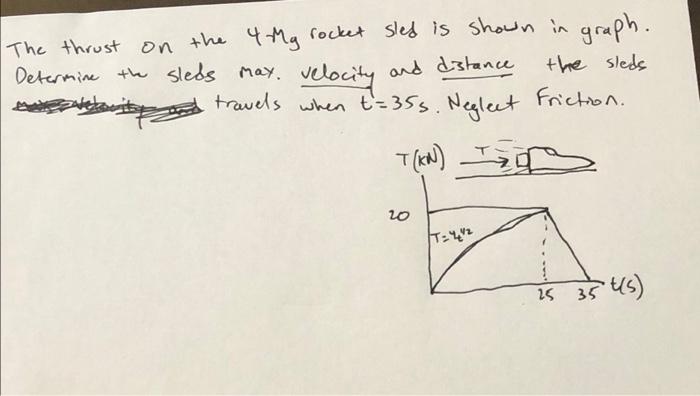 The thrust on the 4-Mg rocket sled is shown in graph.
Determine the sleds max. velocity and distance the sleds
travels when t=35s. Neglect Friction.
T(kN) T
20
T=4t^1/2
25 35 t(s)